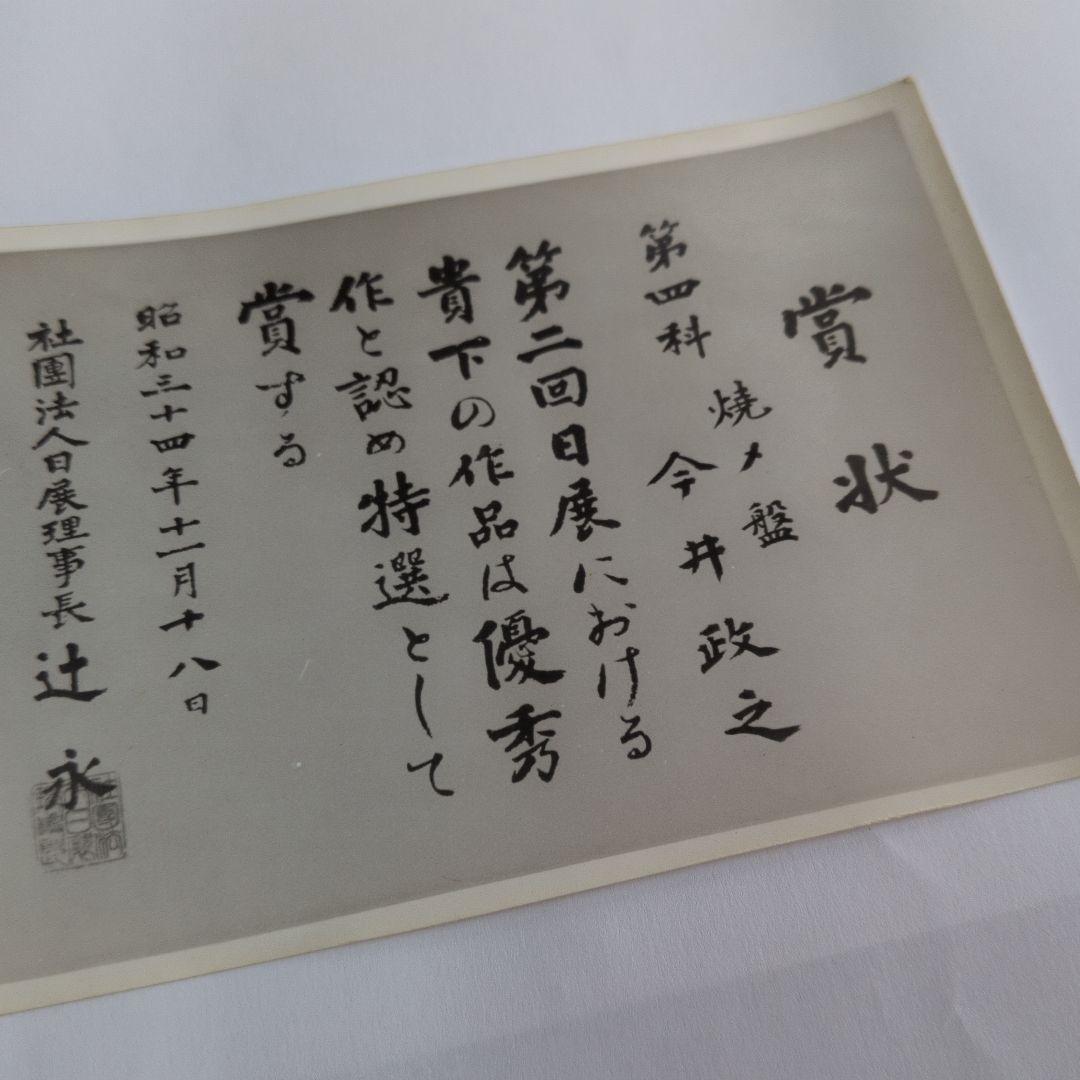 賞状
燒〆盤
第四科 今井政之
第二回日展における
貴下の作品は優秀
作と認め特選として
賞する
昭和三十四年十一月十八日
社團法人日展理事長 辻永